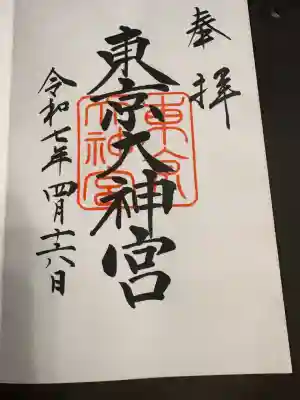 奉拝
東京大神宮
令和七年四月十六日
東京
大神宮